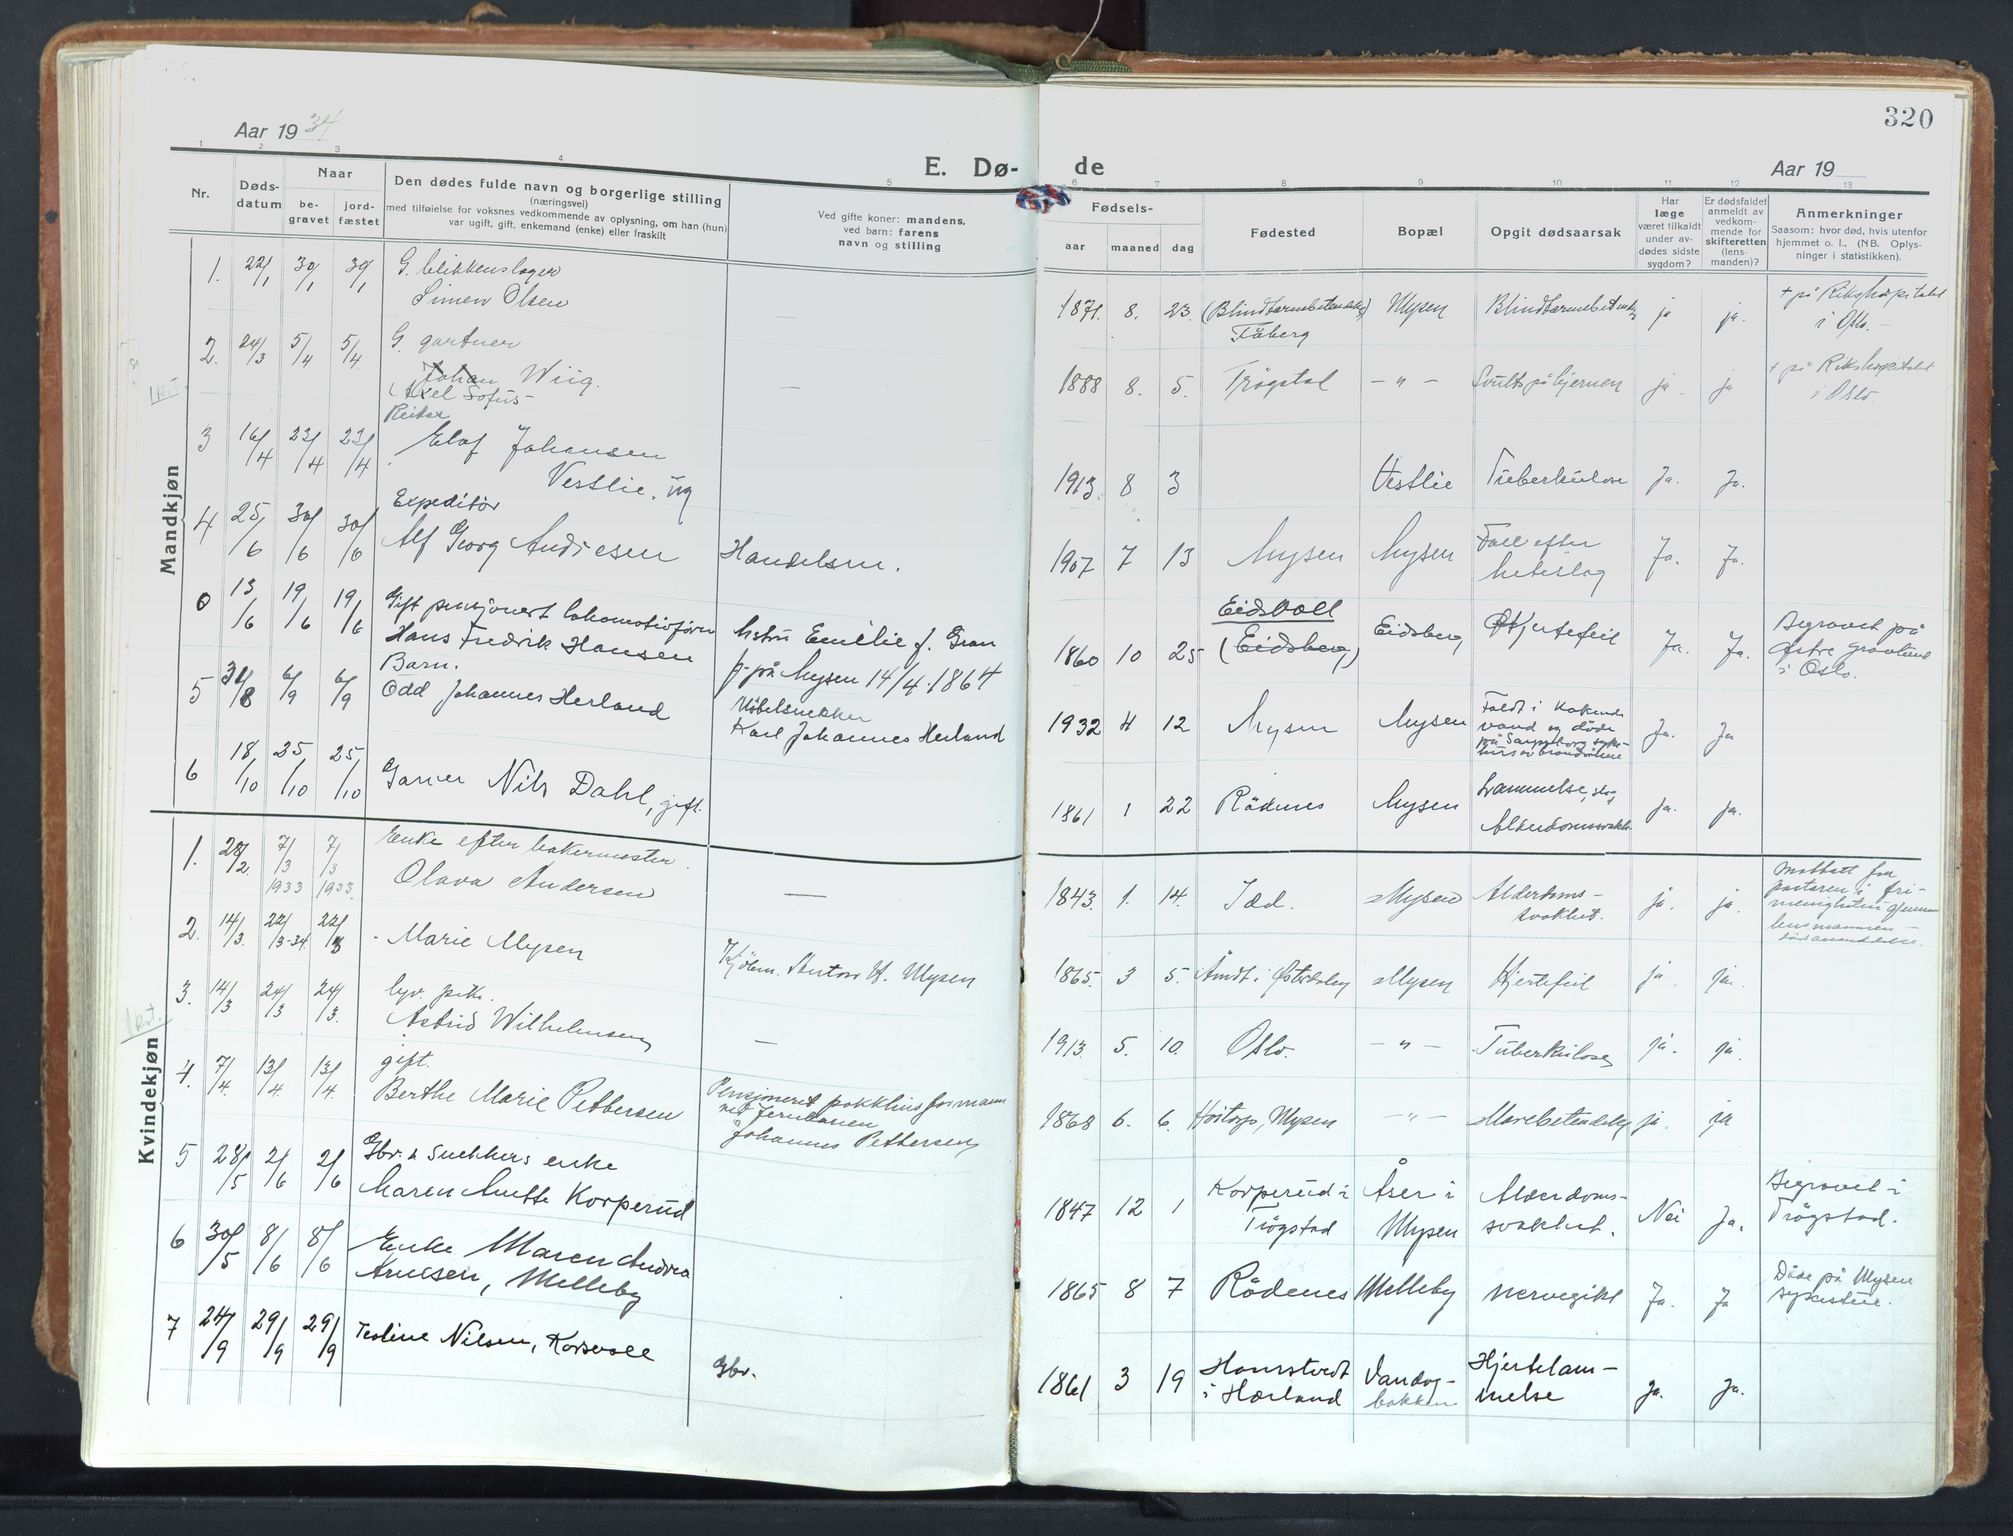 320
Aar 19 34
E. Dø-
de
Aar 19
1 2 3 4 5 6 7 8 9 10 11 12 13
Nr.
Døds-
datum
Naar
be-
gravet
jord-
fæstet
Den dødes fulde navn og borgerlige stilling
(næringsvei)
med tilføielse for voksnes vedkommende av oplysning, om han (hun)
var ugift, gift, enkemand (enke) eller fraskilt
Ved gifte koner: mandens,
ved barn: farens
navn og stilling
Fødsels-
aar maaned dag
Fødested
Bopæl
Opgit dødsaarsak
Har
læge
været tilkaldt
under av-
dødes sidste
sygdom?
Er dødsfaldet
anmeldt av
vedkom-
mende for
skifteretten
(lens-
manden)?
Anmerkninger
Saasom: hvor død, hvis utenfor
hjemmet o. l., (NB. Oplys-
ninger i statistikken).
Mandkjøn
1. 22/1 30/1 30/1 G. blikkenslager
Simen Olsen
1871. 8. 23. (Blindtarmbetendelse) Mysen Blindtarmbetendelse ja ja. + på Rikshospitalet
Fåberg
i Oslo. -
2. 24/3 5/4 5/4 G. gartner
Johan Wiig.
(Axel Sofus -
—
1888 8. 5. Trögstad - " - Svulst på hjernen ja - ja + på Rikshospitalet
i Oslo.
Reidar
3 16/4 23/4 23/4 Elof Johansen
Vestlie, ug
1913. 8 3 Vestlie Tuberkulose Ja. Ja.
Expeditör
4 25/6 30/6 30/6 Alf Georg Andresen Handelsm.
1907 7 13 Mysen Mysen Fall efter
heteslag Ja. Ja.
0 13/6 19/6 19/6 Gift pensjonert lokomotivfører
Hans Fredrik Hansen
Hustru Emilie f. Gran
f. på Mysen 14/4 1864
1860 10 25 Eidsvoll
(Eidsberg) Eidsberg Hjertefeil Ja. Ja. Begravet på
Østre gravlund
i Oslo.
5 31/8 6/9 6/9 Barn.
Odd Johannes Herland
Möbelsnekker
Karl Johannes Herland
1932 4 12 Mysen Mysen Faldt i kokende
vand og døde
på Sarpsborg syke-
hus av brandsårene Ja. Ja
6 18/10 25/10 25/10 Garver Nils Dahl, gift.
1861 1 22 Rödenes Mysen Lammelse, slag
Alderdomssvakh. Ja. Ja.
Kvindekjøn
1. 28/2. 7/3 1933 7/3 1933. Enke efter bakermester
Olava Andersen
—
1843. 1. 14. Idd. Mysen Alderdoms-
svakhet. ja. ja. Mottatt fra
pastoren i fri-
menigheten gjennem
lensmannen -
dödsanmeldelse.
2. 14/3. 22/3-34. 22/3 - Marie Mysen Kjöbm. Anton H. Mysen
1865. 3 5. Åmot i Østerdalen Mysen Hjertefeil ja. ja.
3. 14/3 24/3 24/3. ugv. pike.
Astrid Wilhelmsen
—
1913. 5. 10. Oslo. - " - Tuberkulose ja. ja.
4. 7/4. 13/4. 13/4. gift.
Berthe Marie Pettersen
Pensjonert pakkhusformann
ved Jernbanen
Johannes Pettersen
1868 6. 6. Höitorp, Mysen - " - Marvbetendelse ja. ja
5 28/5 2/6 2/6 Gbr. & Snekkers enke
Maren Anette Korperud
1847 12 1 Korperud i
Trögstad Åser i
Mysen Alderdoms-
svakhet. Nei Ja. Begravet i
Trögstad.
6 30/5 8/6 8/6 Enke Maren Andrea
Arnesen, Melleby
1865 8 7 Rödenes Melleby nervegikt Ja. Ja Døde på Mysen
sykestue.
7 24/9 29/9 29/9 Teoline Nilsen, Korsvoll
Gbr.
1861 3 19 Homstvedt
i Hærland Vandug-
bakken Hjertelam-
melse Ja. Ja.